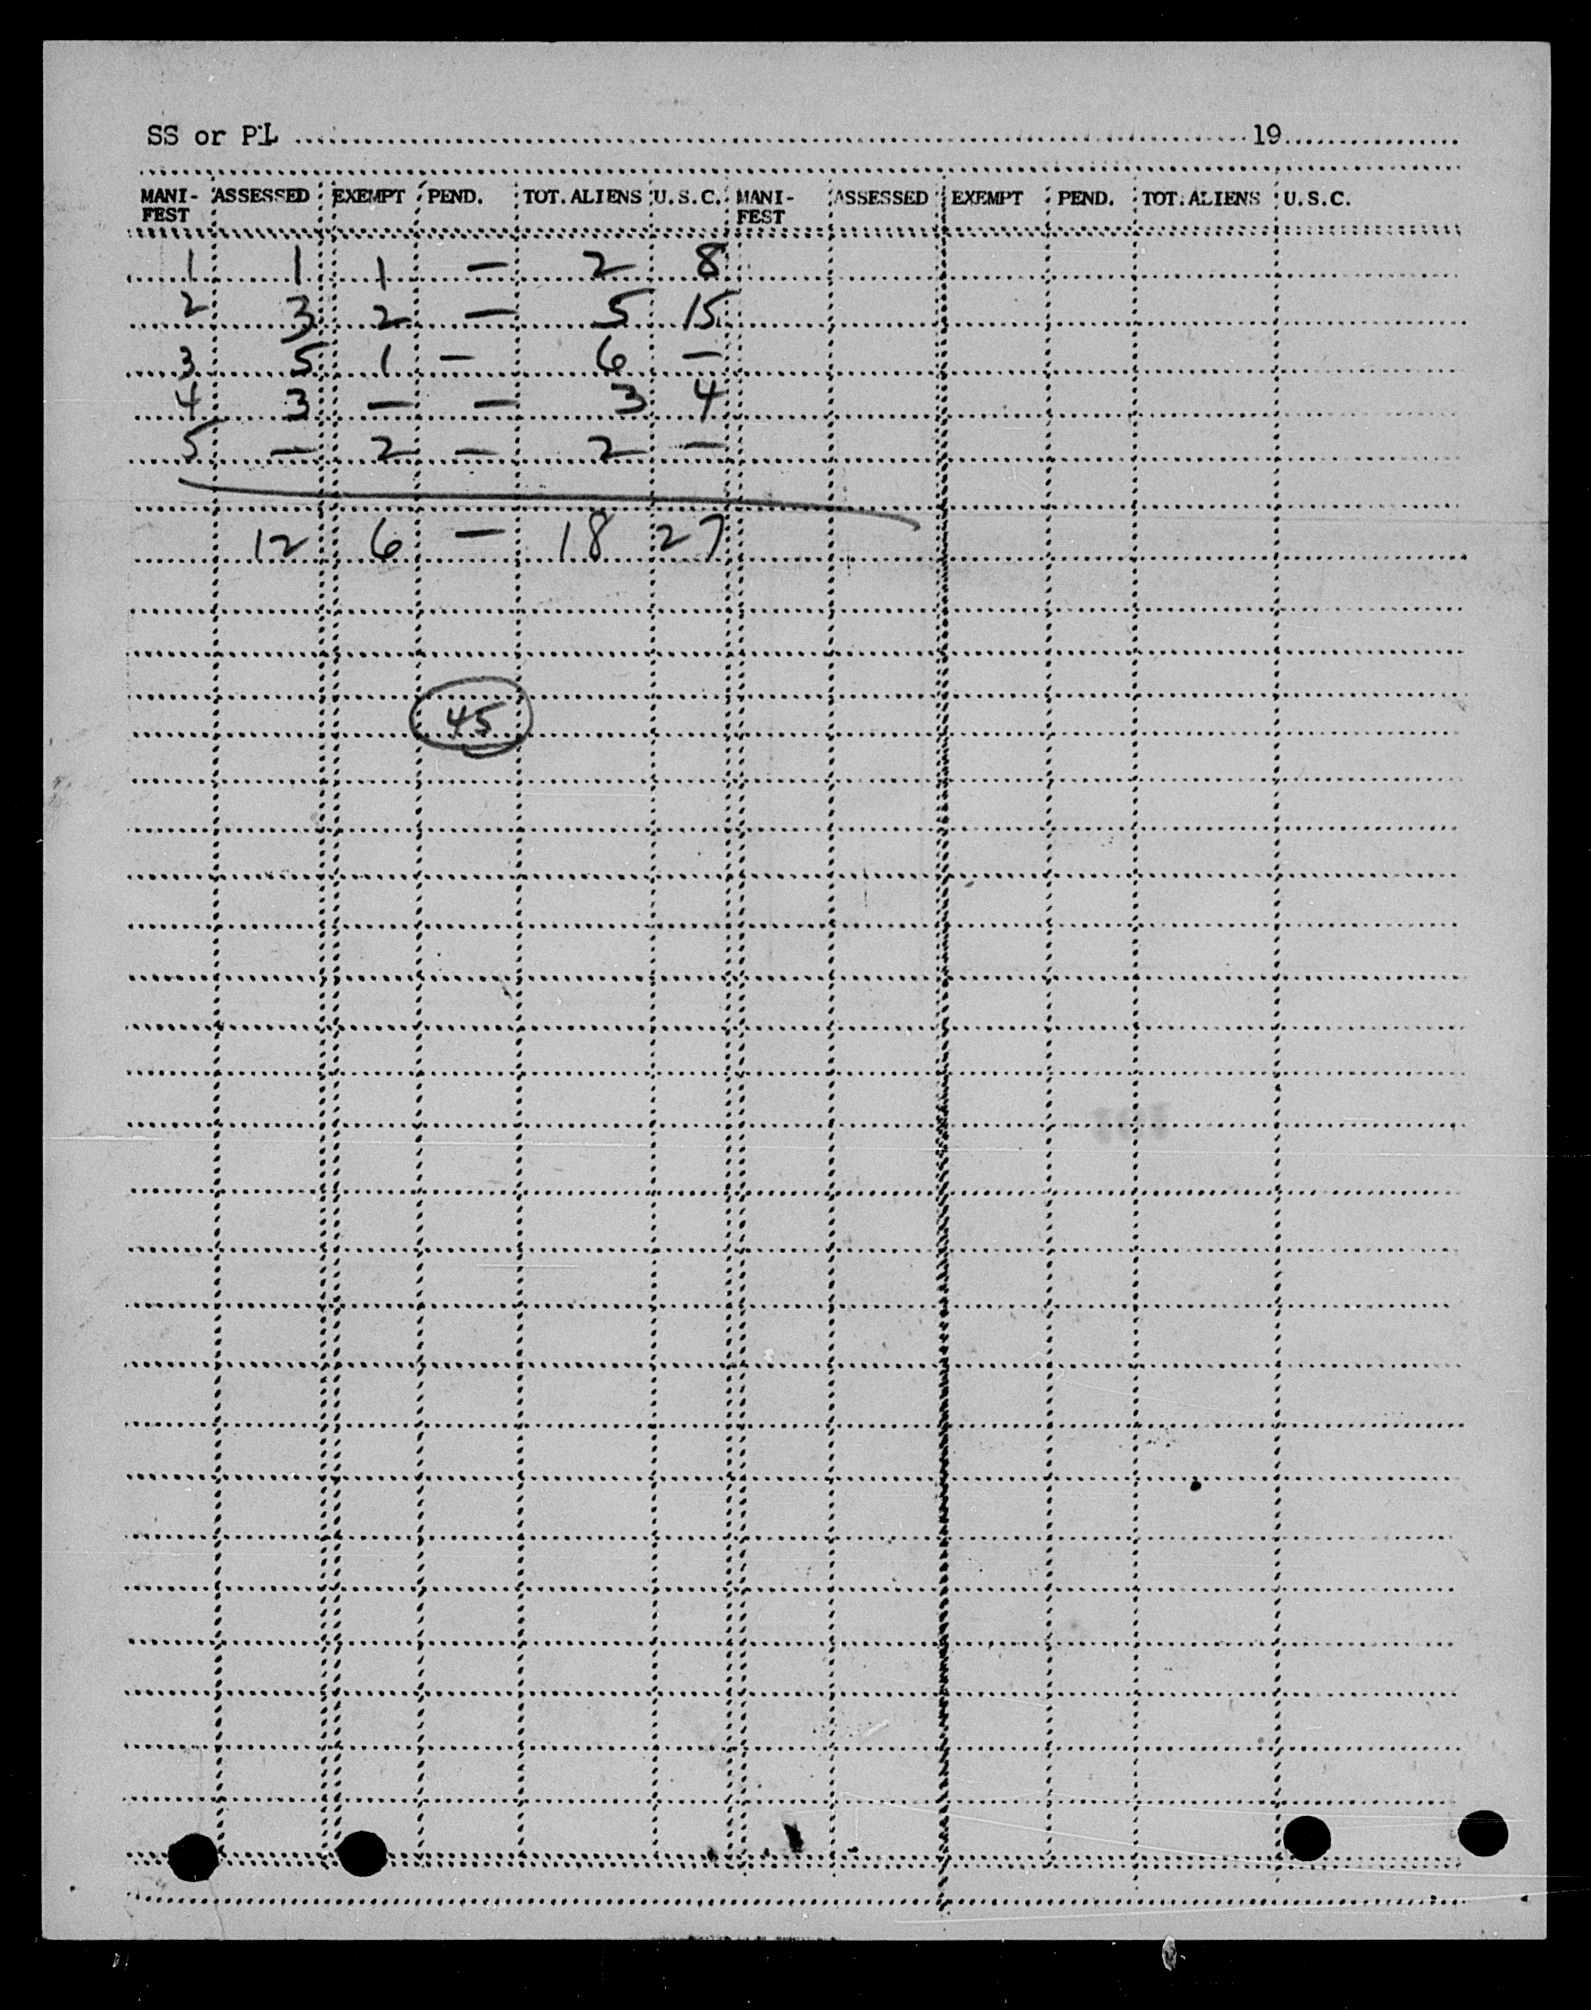 SS or PL ........ 19........
MANI- ASSESSED EXEMPT PEND. TOT. ALIENS U.S.C. MANI- ASSESSED EXEMPT PEND. TOT. ALIENS U.S.C.
FEST FEST
1 1 1 — 2 8
2 3 2 — 5 15
3 5 1 — 6 —
4 3 — — 3 4
5 — 2 — 2 —
12 6 — 18 27
45